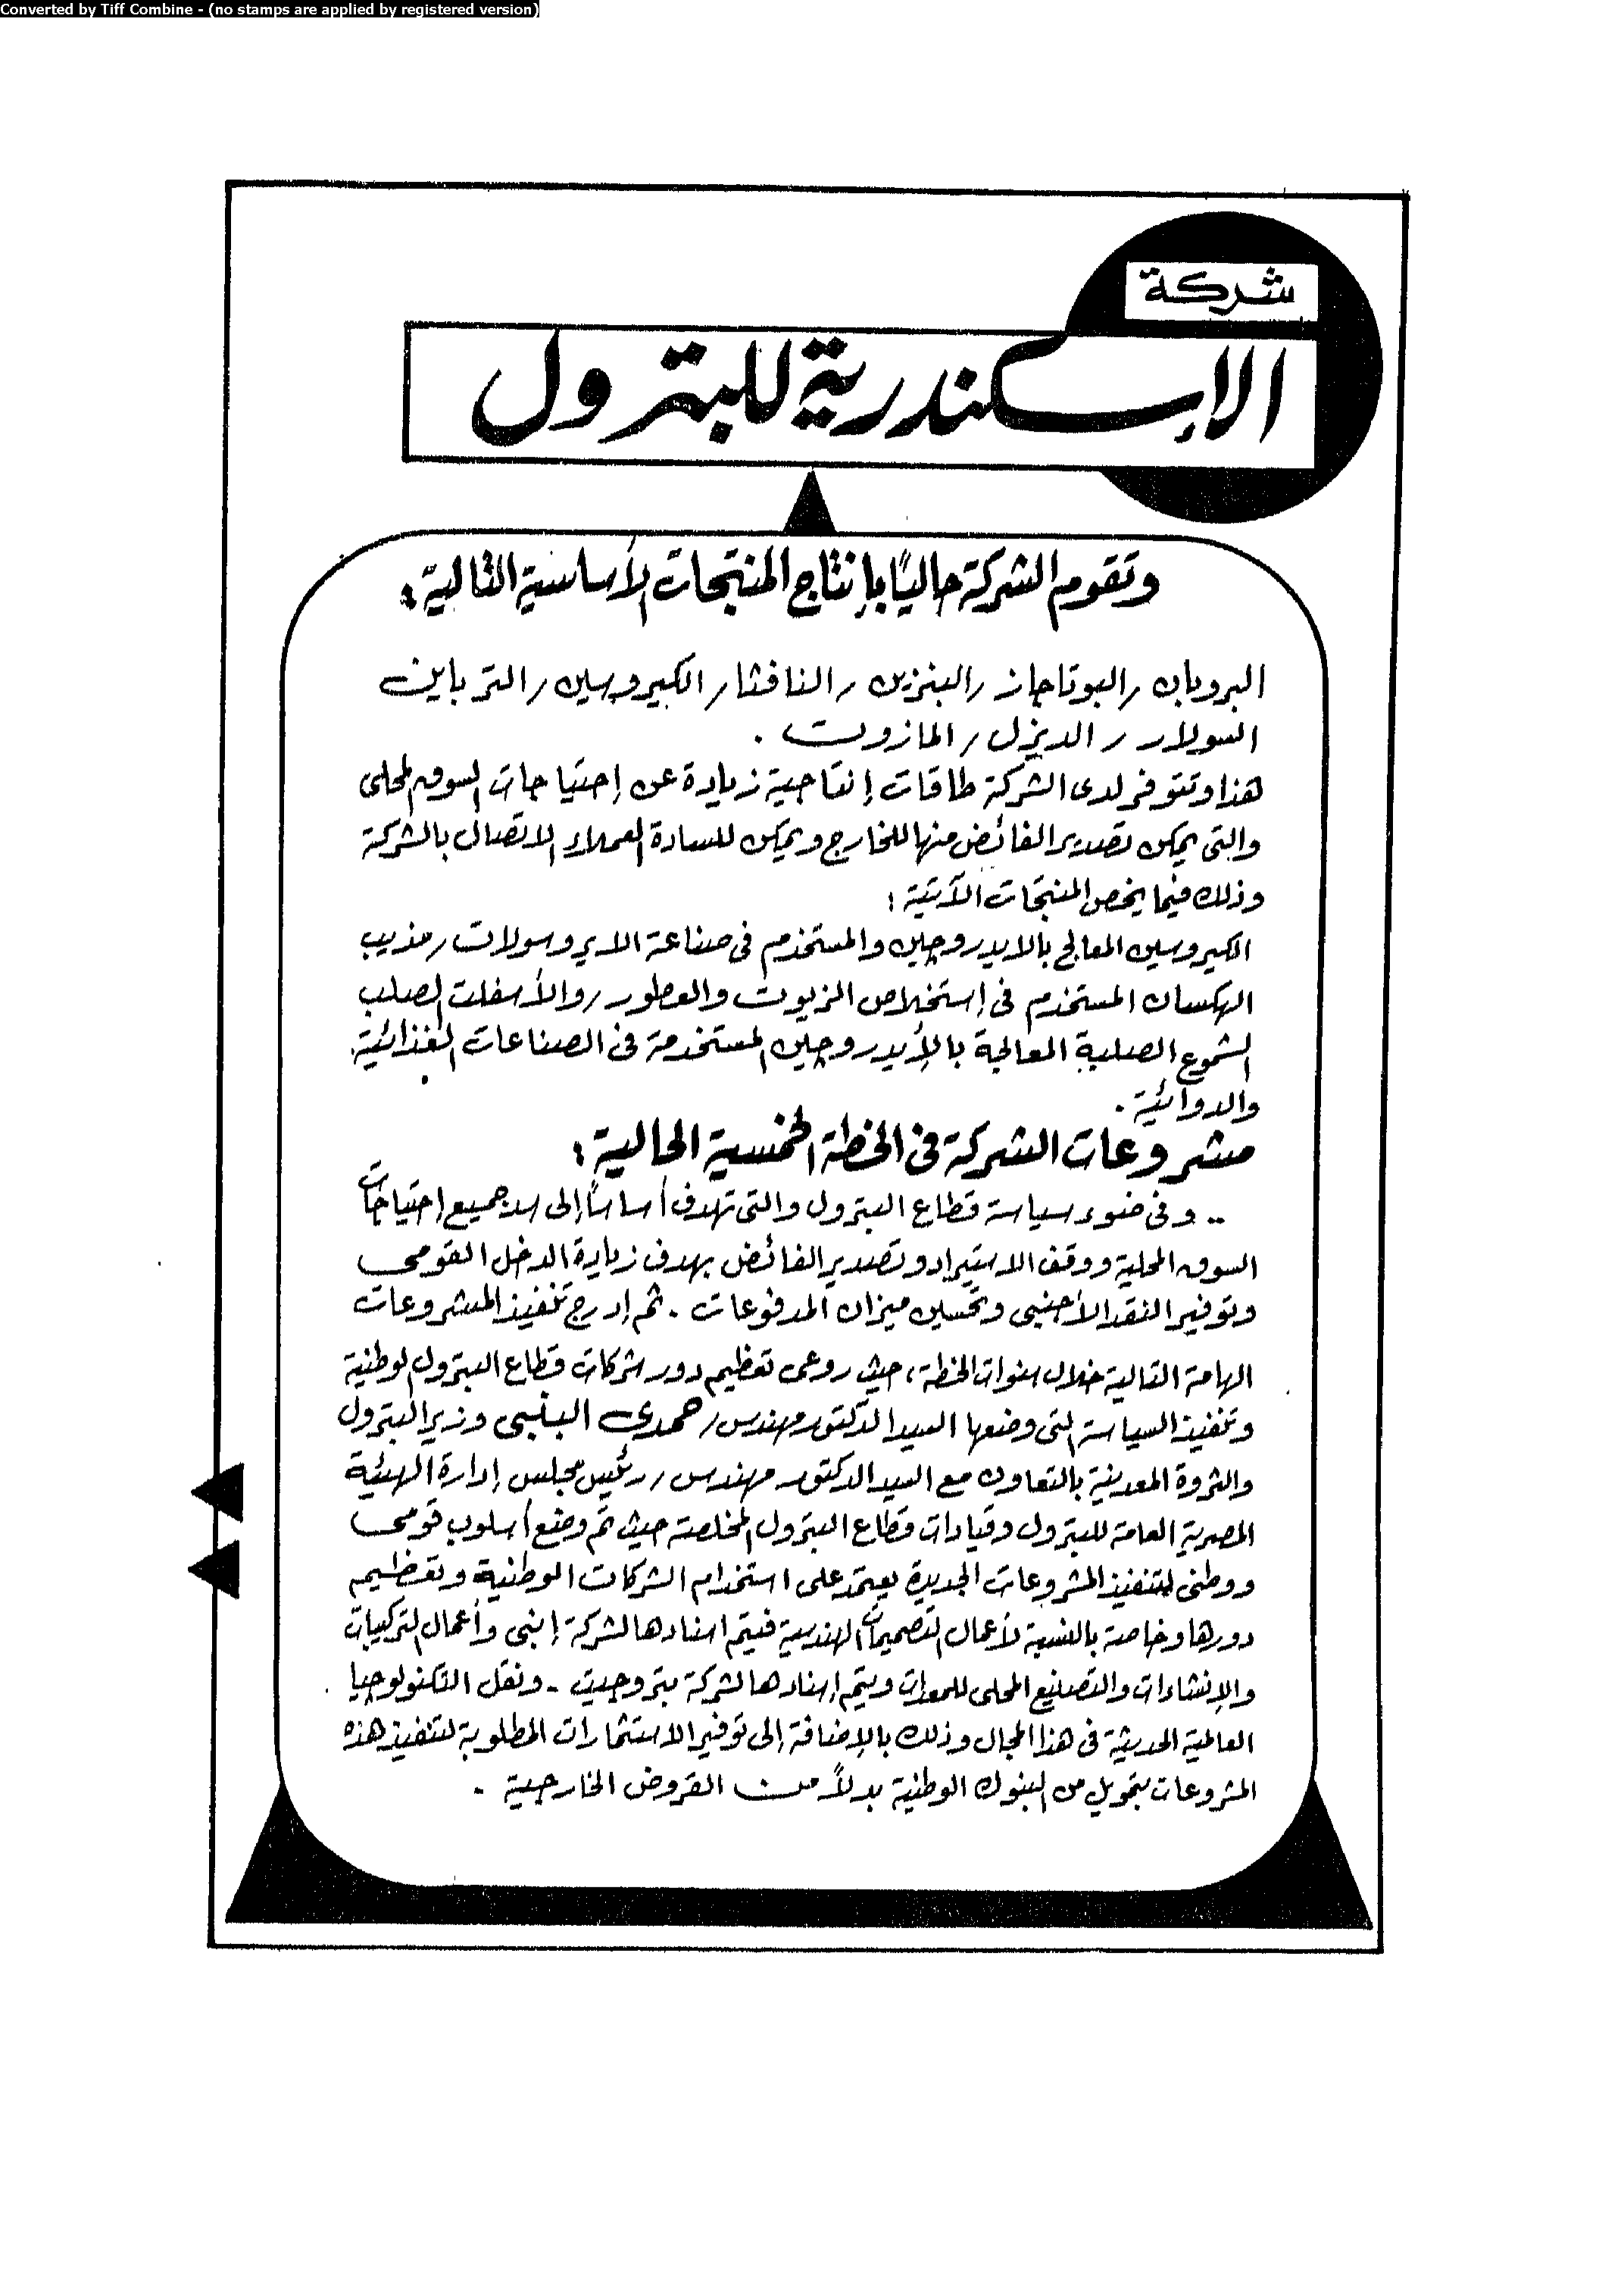 Converted by Tiff Combine - (no stamps are applied by registered version)
شركة
الإسكندرية للبترول
وتقوم الشركة حاليًا بإنتاج المنتجات الأساسية التالية:
البروبان / البوتاجاز / البنزين / النافثا / الكيروسين / الترباين
السولار / الديزل / المازوت .
هذا وتتوفر لدى الشركة طاقات إنتاجية زيادة عن إحتياجات السوق المحلى
والتى يمكن تصدير الفائض منها للخارج ويمكن للسادة العملاء الاتصال بالشركة
وذلك فيما يخص المنتجات الآتية :
الكيروسين المعالج بالايدروجين والمستخدم فى صناعة الايروسولات / مذيب
الهكسان المستخدم فى إستخلاص الزيوت والعطور / والأسفلت الصلب
الشموع الصلبة المعالجة بالأيدروجين المستخدمة فى الصناعات الغذائية
والدوائية .
مشروعات الشركة فى الخطة الخمسية الحالية :
.. وفى ضوء سياسة قطاع البترول والتى تهدف أساسًا إلى سد جميع إحتياجات
السوق المحلية ووقف الاستيراد وتصدير الفائض بهدف زيادة الدخل القومى
وتوفير النقد الأجنبى وتحسين ميزان المدفوعات . ثم إدرج تنفيذ المشروعات
الهامة التالية خلال سنوات الخطة ، حيث روعى تعظيم دور شركات قطاع البترول الوطنية
وتنفيذ السياسة التى وضعها السيد الدكتور مهندس / حمدى البنبى وزير البترول
والثروة المعدنية بالتعاون مع السيد الدكتور مهندس / رئيس مجلس إدارة الهيئة
المصرية العامة للبترول وقيادات قطاع البترول المخلصة حيث تم وضع أسلوب قومى
ووطنى لتنفيذ المشروعات الجديدة يعتمد على استخدام الشركات الوطنية وتعظيم
دورها وخاصة بالنسبة لأعمال التصميمات الهندسية فيتم اسنادها لشركة إنبى وأعمال التركيبات
والإنشاءات والتصنيع المحلى للمعدات ويتم إسنادها لشركة بتروجيت - ونقل التكنولوجيا
العالمية الحديثة فى هذا المجال وذلك بالإضافة إلى توفير الاستثمارات المطلوبة لتنفيذ هذه
المشروعات بتمويل من البنوك الوطنية بدلاً من القروض الخارجية .